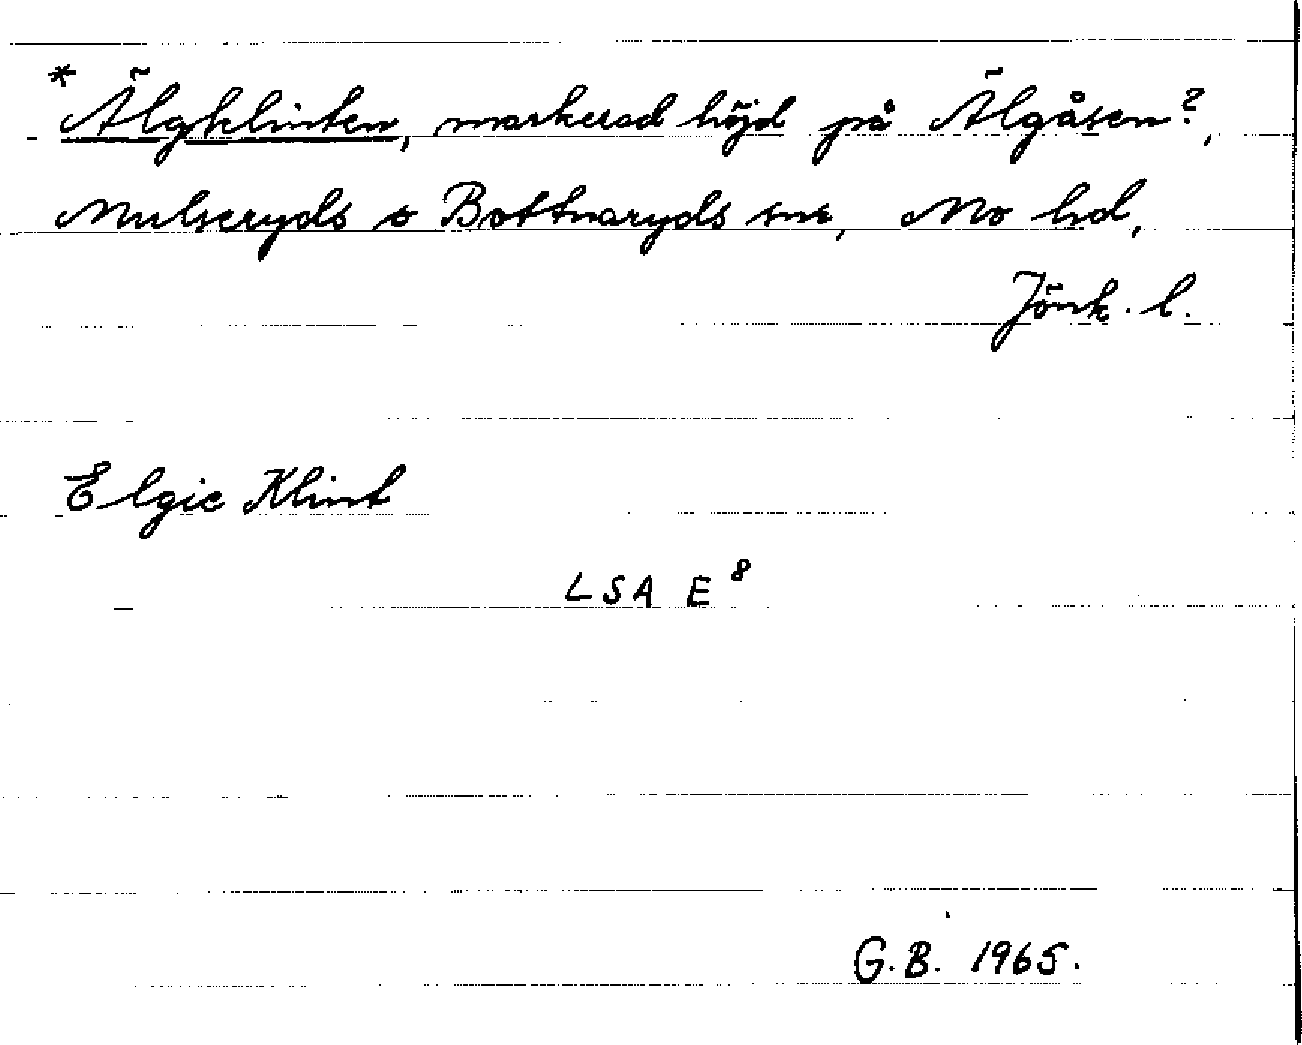 *Älgklinten, markerad höjd på Älgåsen?,
Mulseryds o Bottnaryds snr, Mo hd,
Jönk. l.
Elgie Klint
LSA E⁸
G.B. 1965.